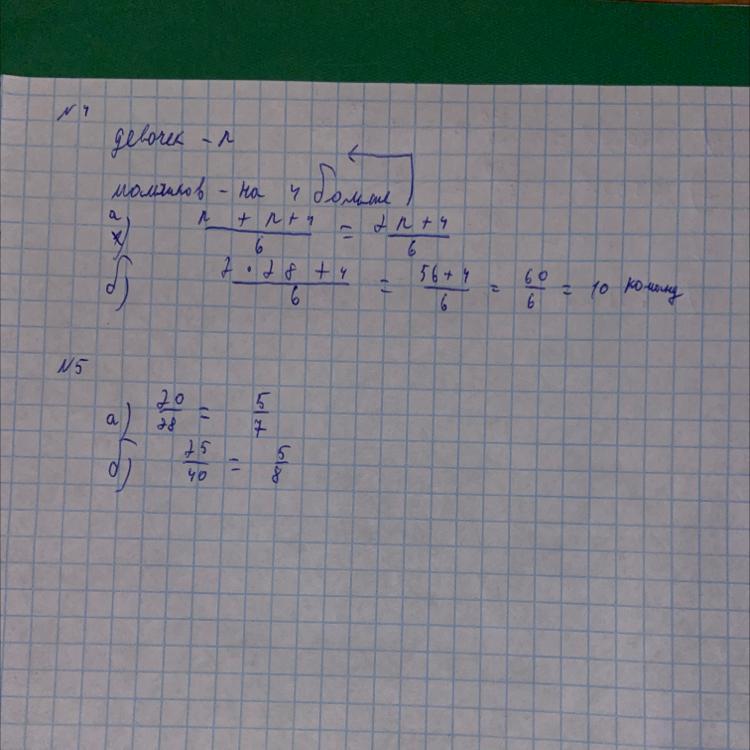 №4
девочек - n
мальчиков - на 4 больше
а) n + n + 4 / 6 = 2n + 4 / 6
б) 2 · 28 + 4 / 6 = 56 + 4 / 6 = 60 / 6 = 10 команд
№5
а) 20/28 = 5/7
б) 25/40 = 5/8